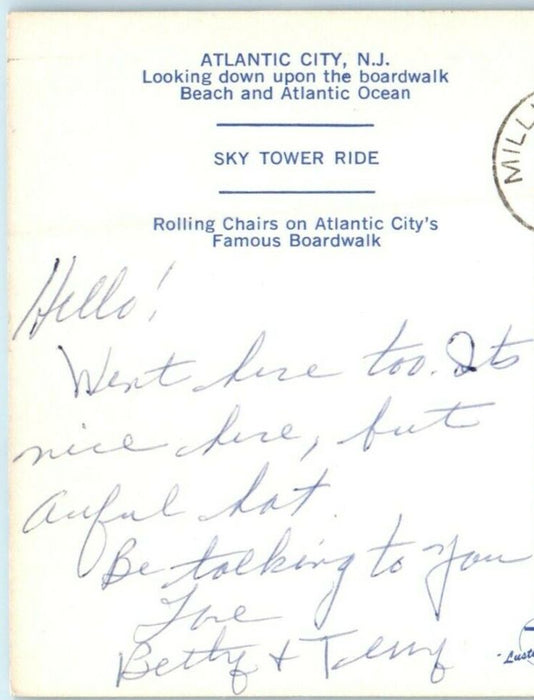 ATLANTIC CITY, N.J.
Looking down upon the boardwalk
Beach and Atlantic Ocean
SKY TOWER RIDE
Rolling Chairs on Atlantic City's
Famous Boardwalk
MILL
Hello!
Went here too. Its
nice here, but
awful hot.
Be talking to you
Love
Betty + Terry